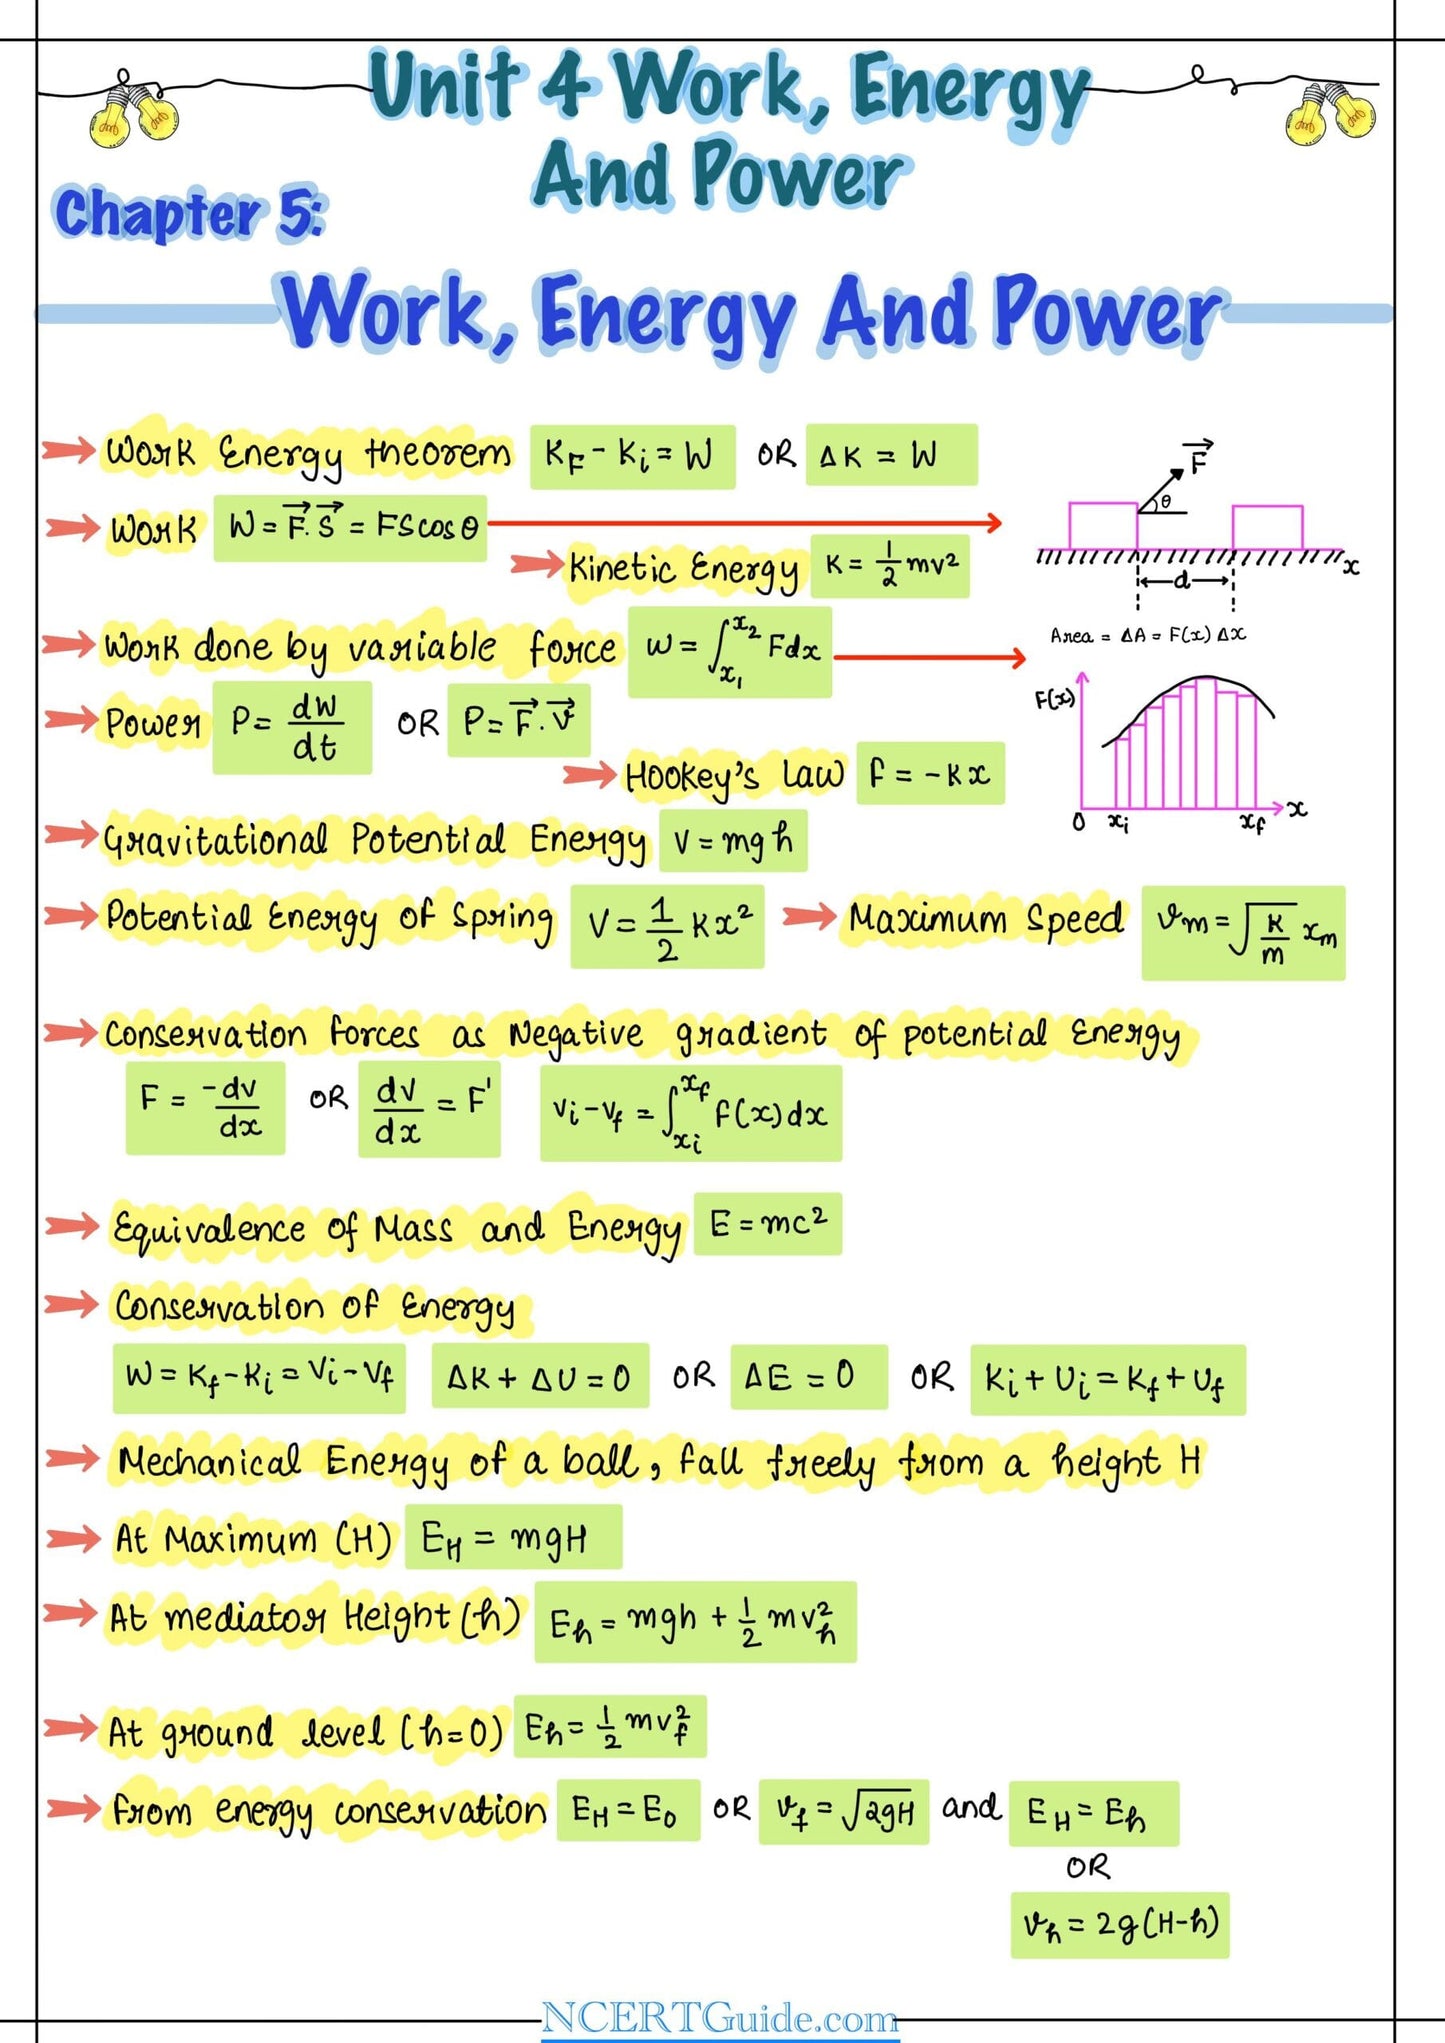 Unit 4 Work, Energy
And Power
Chapter 5:
Work, Energy And Power
Work Energy theorem K_F - K_i = W OR ΔK = W
Work W = F⃗.S⃗ = FS cos θ
Kinetic Energy K = 1/2 mv²
F⃗
θ
x
d
Work done by variable force W = ∫_{x₁}^{x₂} Fdx
Area = ΔA = F(x) Δx
Power P = dW/dt OR P = F⃗.v⃗
F(x)
0 x_i x_f x
Hookey's Law F = -Kx
Gravitational Potential Energy V = mgh
Potential Energy of Spring V = 1/2 Kx²
Maximum Speed v_m = √(K/m) x_m
Conservation forces as Negative gradient of potential Energy
F = -dv/dx OR dv/dx = F' V_i - V_f = ∫_{x_i}^{x_f} F(x)dx
Equivalence of Mass and Energy E = mc²
Conservation of Energy
W = K_f - K_i = V_i - V_f ΔK + ΔU = 0 OR ΔE = 0 OR K_i + U_i = K_f + U_f
Mechanical Energy of a ball, fall freely from a height H
At Maximum (H) E_H = mgH
At mediator Height (h) E_h = mgh + 1/2 mv_h²
At ground level (h=0) E_h = 1/2 mv_f²
From energy conservation E_H = E_0 OR v_f = √2gH and E_H = E_h
OR
v_h = 2g(H-h)
NCERTGuide.com